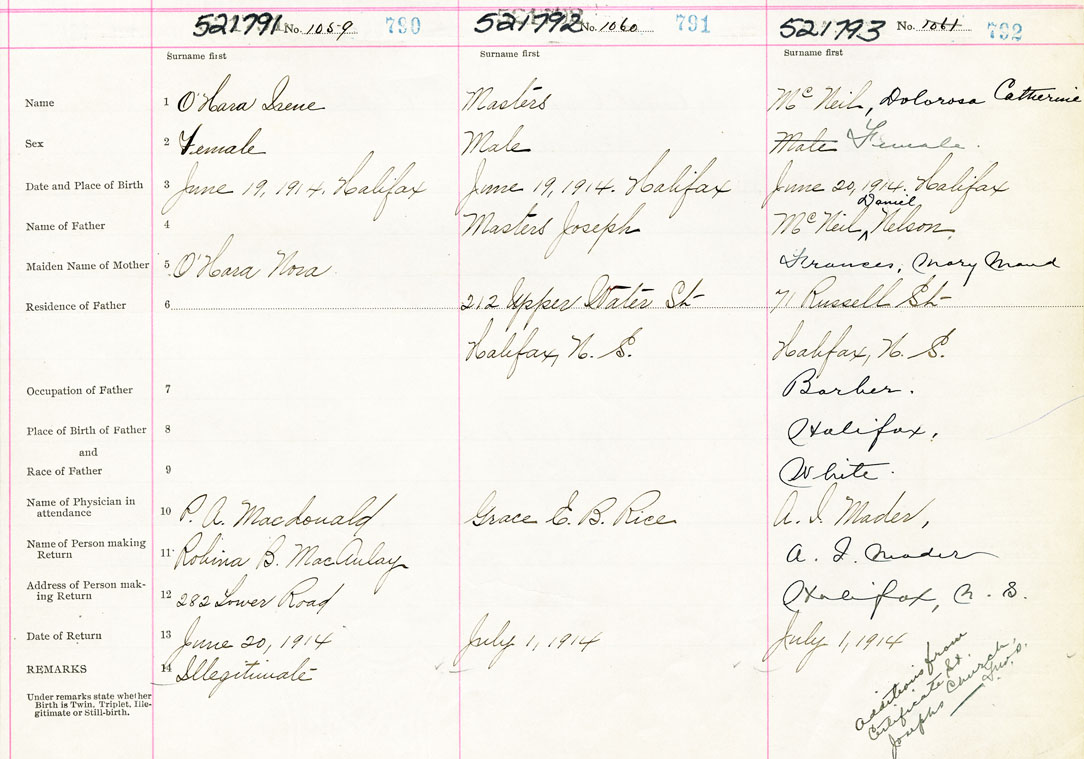 521791 No. 1059 790 521792 No. 1060 791 521793 No. 1061 792
Surname first Surname first Surname first
Name 1 O'Hara Irene Masters McNeil, Dolorosa Catherine
Sex 2 Female Male Male Female.
Date and Place of Birth 3 June 19, 1914. Halifax June 19, 1914. Halifax June 20, 1914. Halifax
Daniel
Name of Father 4 Masters Joseph McNeil, Nelson
Maiden Name of Mother 5 O'Hara Nora Frances, Mary Maud
Residence of Father 6 212 Upper Water St 71 Russell St
Halifax, N. S. Halifax, N. S.
Occupation of Father 7 Barber.
Place of Birth of Father 8 Halifax,
and
Race of Father 9 White.
Name of Physician in
attendance 10 P. A. Macdonald Grace E. B. Rice A. I. Mader,
Name of Person making
Return 11 Robina B. MacAulay A. I. Mader
Address of Person mak-
ing Return 12 282 Lower Road Halifax, N. S.
Date of Return 13 June 20, 1914 July 1, 1914 July 1, 1914
REMARKS 14 Illegitimate
Under remarks state whether
Birth is Twin, Triplet, Ille-
gitimate or Still-birth.
Additions from
Certificate St.
Josephs Church,